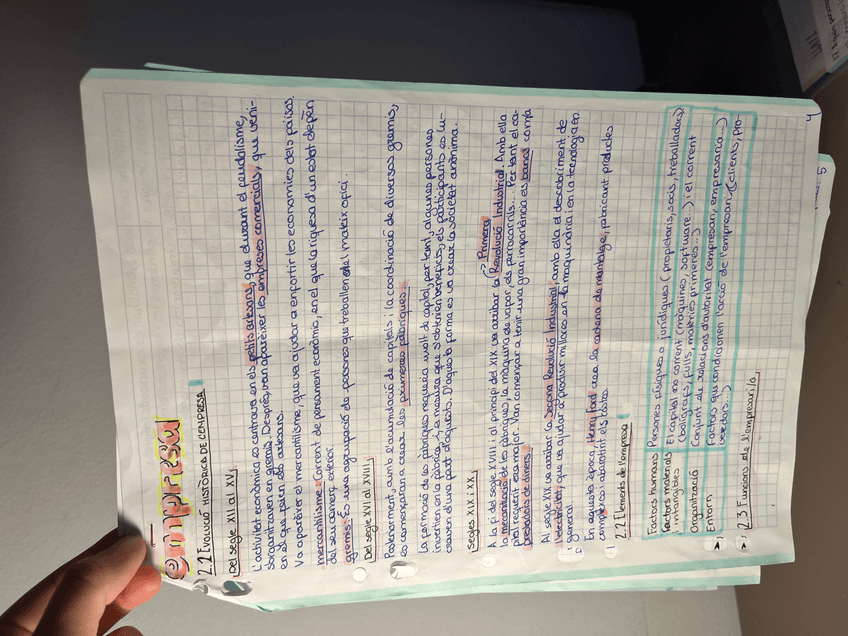 empresa
2.1 EVOLUCIÓ HISTÒRICA DE L'EMPRESA
Del segle XII al XV
L'activitat econòmica es centrava en els petits artesans, que durant el feudalisme,
s'organitzaven en gremis. Després, van aparèixer les empreses comercials, que veni-
en el que feien els artesans.
Va aparèixer el mercantilisme, que va ajudar a enfortir les economies dels països.
mercantilisme: corrent de pensament econòmic, en el que la riquesa d'un estat depèn
del seu comerç exterior.
gremis: És una agrupació de persones que treballen del mateix ofici.
Del segle XVI al XVIII
Posteriorment, amb l'acumulació de capitals i la coordinació de diversos gremis,
es començaren a crear les primeres fàbriques.
La formació de les fàbriques requeria molt de capital, per tant, algunes persones
invertien en la fàbrica, i a mesura que s'obtenen beneficis, els participants es lu-
craven d'una part d'aquests. D'aquesta forma es va crear la societat anònima.
Segles XIX i XX
Primera
A la fi del segle XVIII i al principi del XIX va arribar la Revolució Industrial. Amb ella
la mecanització de les fàbriques, la màquina de vapor, els ferrocarrils... Per tant el ca-
pital requerit era major. Van començar a tenir una gran importància els bancs com a
prestadors de diners.
Al segle XIX va arribar la Segona Revolució Industrial, amb ella el descobriment de
l'electricitat, que va ajudar a produir millores en la maquinària i en la tecnologia en
general.
En aquesta època, Henry Ford crea la cadena de muntatge, fabricant productes
complexos abaratint els costos.
2.2 Elements de l'empresa
Factors humans Persones físiques o jurídiques (propietaris, socis, treballadors)
Factors materials El capital no corrent (màquines, software...) i el corrent
i intangibles (bolígrafs, fulls, matèries primeres...)
Organització Conjunt de relacions d'autoritat (empresari, empresària...)
Entorn Factors que condicionen l'acció de l'empresari (clients, pro-
veedors...)
2.3 Funcions de l'empresari/a
4
5